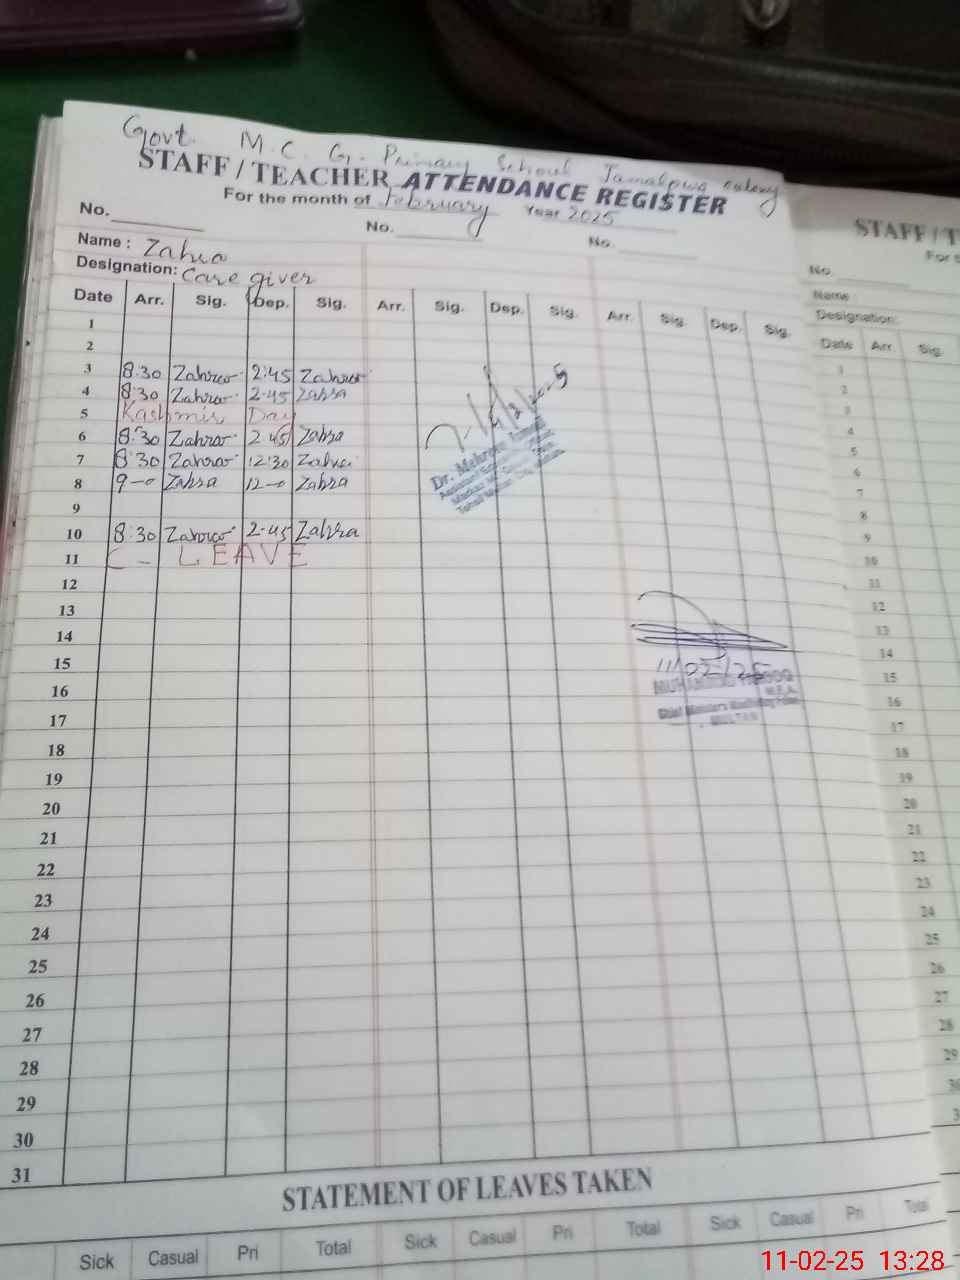 Govt. M.C. G. Primary School Jamalpura colony
STAFF / TEACHER ATTENDANCE REGISTER
For the month of February Year 2025
No. No. No.
Name : Zahra
Designation: Care giver
Date Arr. Sig. Dep. Sig. Arr. Sig. Dep. Sig. Arr. Sig. Dep. Sig.
1
2
3 8:30 Zahra 2:45 Zahra
4 8:30 Zahra 2-45 Zahra
5 Kashmir Day
6 8:30 Zahra 2:45 Zahra
7 8:30 Zahra 12:30 Zahra
8 9-0 Zahra 12-0 Zahra
9
10 8:30 Zahra 2-45 Zahra
11 C - LEAVE
12
13
14
15
16
17
18
19
20
21
22
23
24
25
26
27
28
29
30
31
Dr. Mehreen
11/02/25
MUHAMMAD
M.E.A.
Chief Minister's Monitoring Force
MULTAN
STATEMENT OF LEAVES TAKEN
Sick Casual Pri Total Sick Casual Pri Total Sick Casual Pri Total
STAFF / T
For
No.
Name
Designation:
Date Arr. Sig.
1
2
3
4
5
6
7
8
9
10
11
12
13
14
15
16
17
18
19
20
21
22
23
24
25
26
27
28
29
11-02-25 13:28